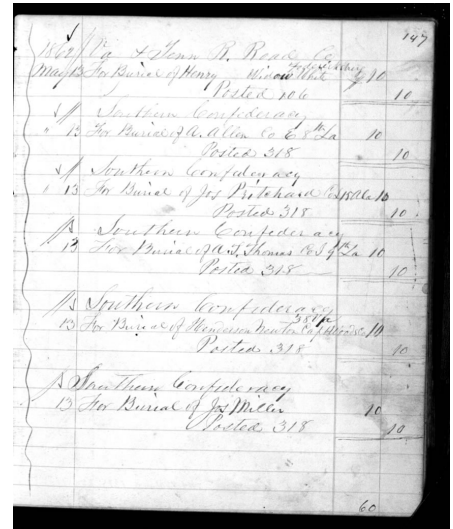 147
1862 Va & Tenn R. Road Co
May 13 For Burial of Henry Widow White 10
Posted 106 10
Southern Confederacy
" 13 For Burial of A. Allen Co E 8th La 10
Posted 318 10
Southern Confederacy
" 13 For Burial of Jos Pritchard Co 18 Ala 10
Posted 318 10
Southern Confederacy
13 For Burial of A. T. Thomas Co I 9th La 10
Posted 318 10
Southern Confederacy
13 For Burial of Henderson Newton 38 Va 10
Posted 318 10
Southern Confederacy
13 For Burial of Jos Miller 10
Posted 318 10
60